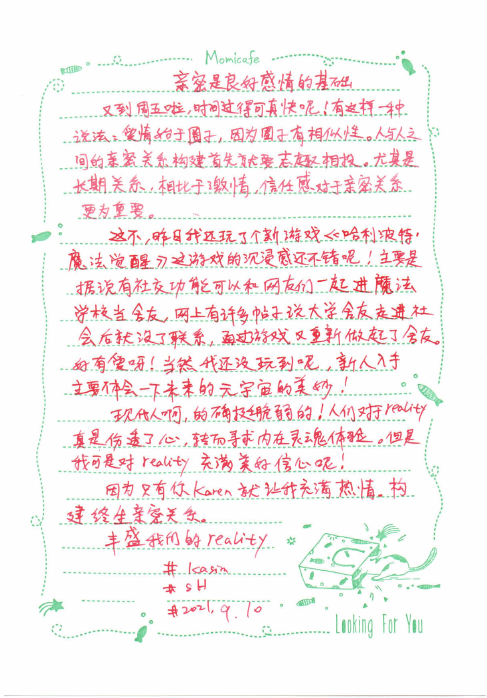 Momicafe
亲密是良好感情的基础
又到周五啦,时间过得可真快呢!有这样一种
说法:爱情始于圈子,因为圈子有相似性。人与人之
间的亲密关系构建首先就要志趣相投。尤其是
长期关系,相比于激情,信任感对于亲密关系
更为重要。
这不,昨日我还玩了个新游戏《哈利波特:
魔法觉醒》这游戏的沉浸感还不错呢!主要是
据说有社交功能可以和网友们一起进魔法
学校当舍友,网上有许多帖子说大学舍友走进社
会后就没了联系,而游戏又重新做起了舍友。
好有爱呀!当然我还没玩到呢,新人入手
主要体会一下未来的元宇宙的美妙!
现代人啊,的确挺脆弱的!人们对于reality
真是伤透了心,转而寻求内在灵魂体验。但是
我可是对reality充满美好信心呢!
因为只有你Karen就让我充满热情。构
建终生亲密关系。
丰盛我们的reality
#
# SH
#2021.9.10
Looking For You